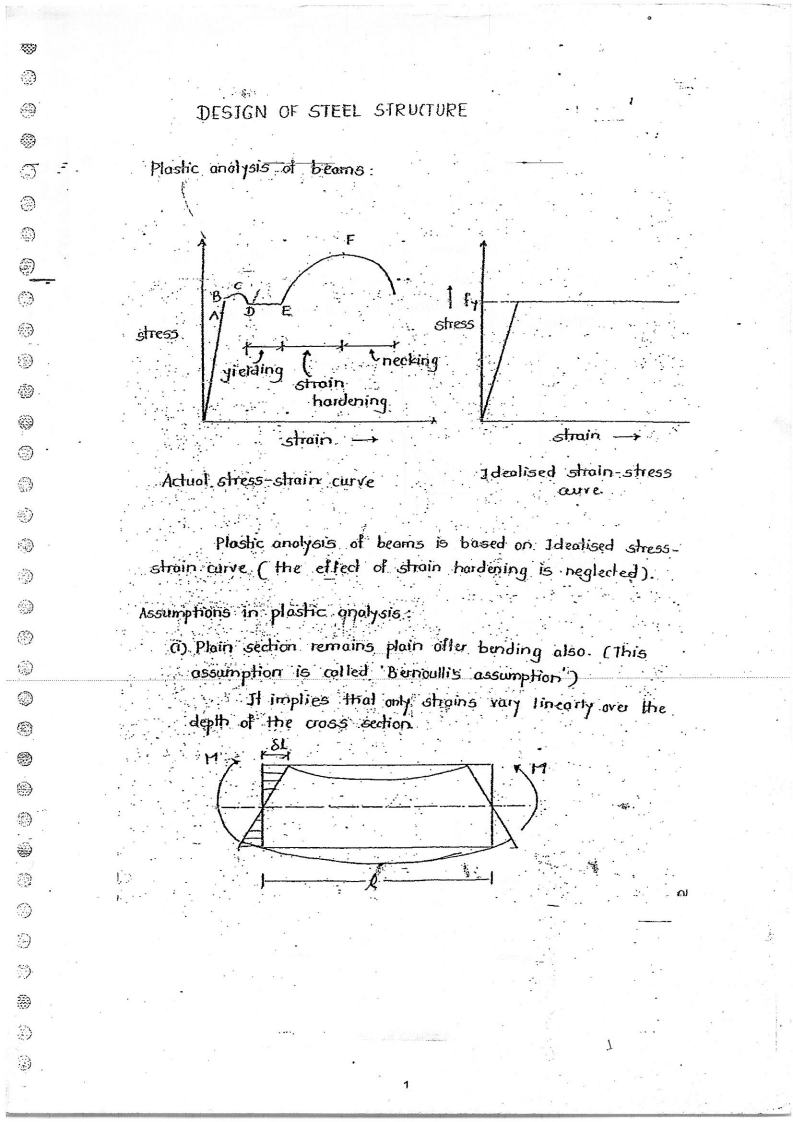 DESIGN OF STEEL STRUCTURE
Plastic analysis of beams :
A
F
B
C
A
D
E
stress
yielding
strain
hardening
necking
strain →
Actual stress-strain curve
↑ fy
stress
strain →
Idealised strain-stress
curve.
Plastic analysis of beams is based on Idealised stress-
strain curve ( the effect of strain hardening is neglected ).
Assumptions in plastic analysis :
a) Plain section remains plain after bending also. (This
assumption is called 'Bernoulli's assumption')
It implies that only strains vary linearly over the
depth of the cross section.
δl
M
M
l
1